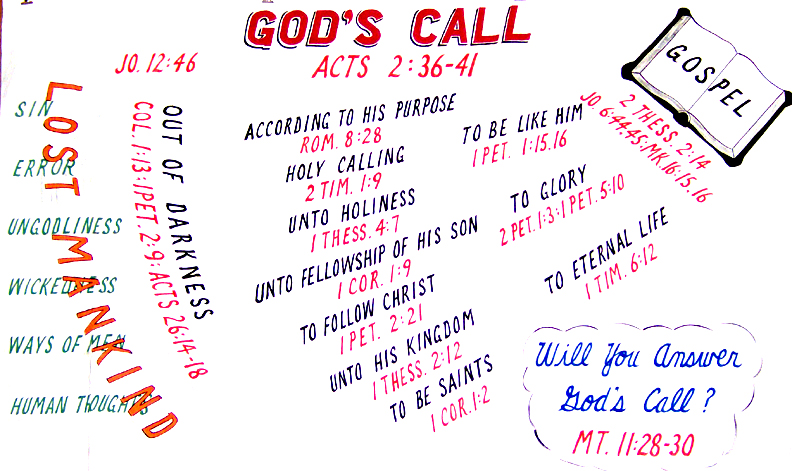 GOD'S CALL
ACTS 2:36-41
JO. 12:46
GOSPEL
2 THESS. 2:14
JO. 6:44.45:MK.16:15.16
LOST MANKIND
SIN
ERROR
UNGODLINESS
WICKEDNESS
WAYS OF MEN
HUMAN THOUGHTS
OUT OF DARKNESS
COL. 1:13:1PET. 2:9:ACTS 26:14-18
ACCORDING TO HIS PURPOSE
ROM. 8:28
HOLY CALLING
2 TIM. 1:9
UNTO HOLINESS
1 THESS. 4:7
UNTO FELLOWSHIP OF HIS SON
1 COR. 1:9
TO FOLLOW CHRIST
1 PET. 2:21
UNTO HIS KINGDOM
1 THESS. 2:12
TO BE SAINTS
1 COR. 1:2
TO BE LIKE HIM
1 PET. 1:15.16
TO GLORY
2 PET. 1:3:1 PET. 5:10
TO ETERNAL LIFE
1 TIM. 6:12
Will You Answer
God's Call?
MT. 11:28-30